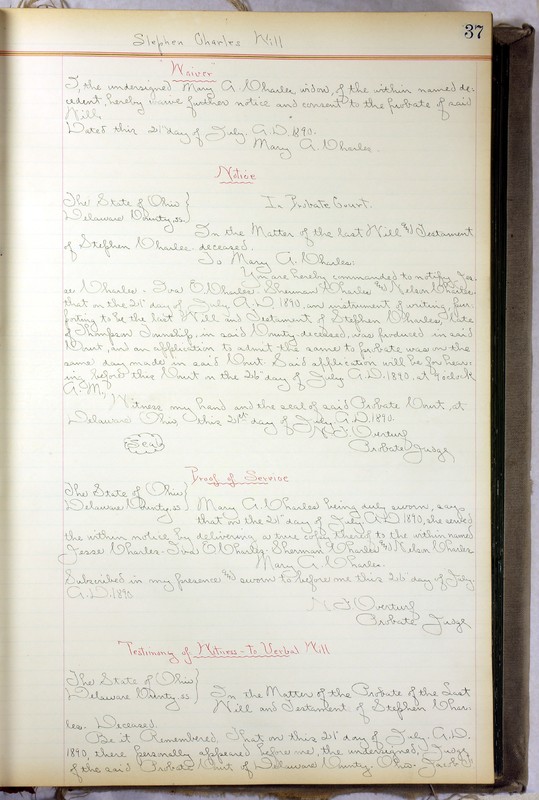 37
Stephen Charles Will
"Waiver"
I, the undersigned Mary A. Charles, widow, of the within named de-
cedent, hereby waive further notice and consent to the probate of said
Will.
Dated this 21st day of July. A.D. 1890.
Mary A. Charles.
Notice
The State of Ohio }
Delaware County, ss }
In Probate Court.
In the Matter of the last Will & Testament
of Stephen Charles. deceased.
To Mary A. Charles:
You are hereby commanded to notify Jes-
se Charles - Iva O Charles - Sherman Charles & Nelson Charles
that on the 21st day of July A.D 1890, an instrument of writing, pur-
porting to be the last Will and Testament of Stephen Charles, late
of Thompson Township, in said County, deceased, was produced in said
Court, and an application to admit the same to probate was on the
same day made in said Court. Said application will be for hear-
ing before this Court on the 26" day of July A.D. 1890, at 9 oclock
A.M.
Witness my hand and the seal of said Probate Court, at
Delaware Ohio, this 21st day of July A.D. 1890.
Seal
N. F. Overturf
Probate Judge
Proof of Service
The State of Ohio }
Delaware County, ss } Mary A. Charles being duly sworn, says
that on the 21st day of July A.D 1890, she served
the within notice by delivering a true copy thereof to the within named
Jesse Charles - Iva O Charles - Sherman Charles & Nelson Charles
Mary A. Charles.
Subscribed in my presence & sworn to before me this 26" day of July
A.D. 1890
N. F. Overturf
Probate Judge
Testimony of Witness - to Verbal Will
The State of Ohio }
Delaware County ss } In the Matter of the Probate of the Last
Will and Testament of Stephen Char-
les. Deceased.
Be it Remembered That on this 21st day of July. A.D.
1890, there personally appeared before me, the undersigned, Judge
of the said Probate Court of Delaware County. Ohio. Jacob